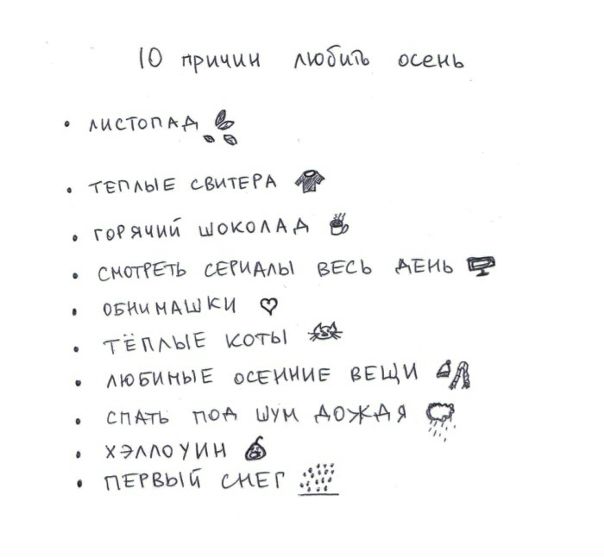 10 причин любить осень
• ЛИСТОПАД
• ТЕПЛЫЕ СВИТЕРА
• ГОРЯЧИЙ ШОКОЛАД
• СМОТРЕТЬ СЕРИАЛЫ ВЕСЬ ДЕНЬ
• ОБНИМАШКИ
• ТЁПЛЫЕ КОТЫ
• ЛЮБИМЫЕ ОСЕННИЕ ВЕЩИ
• СПАТЬ ПОД ШУМ ДОЖДЯ
• ХЭЛЛОУИН
• ПЕРВЫЙ СНЕГ